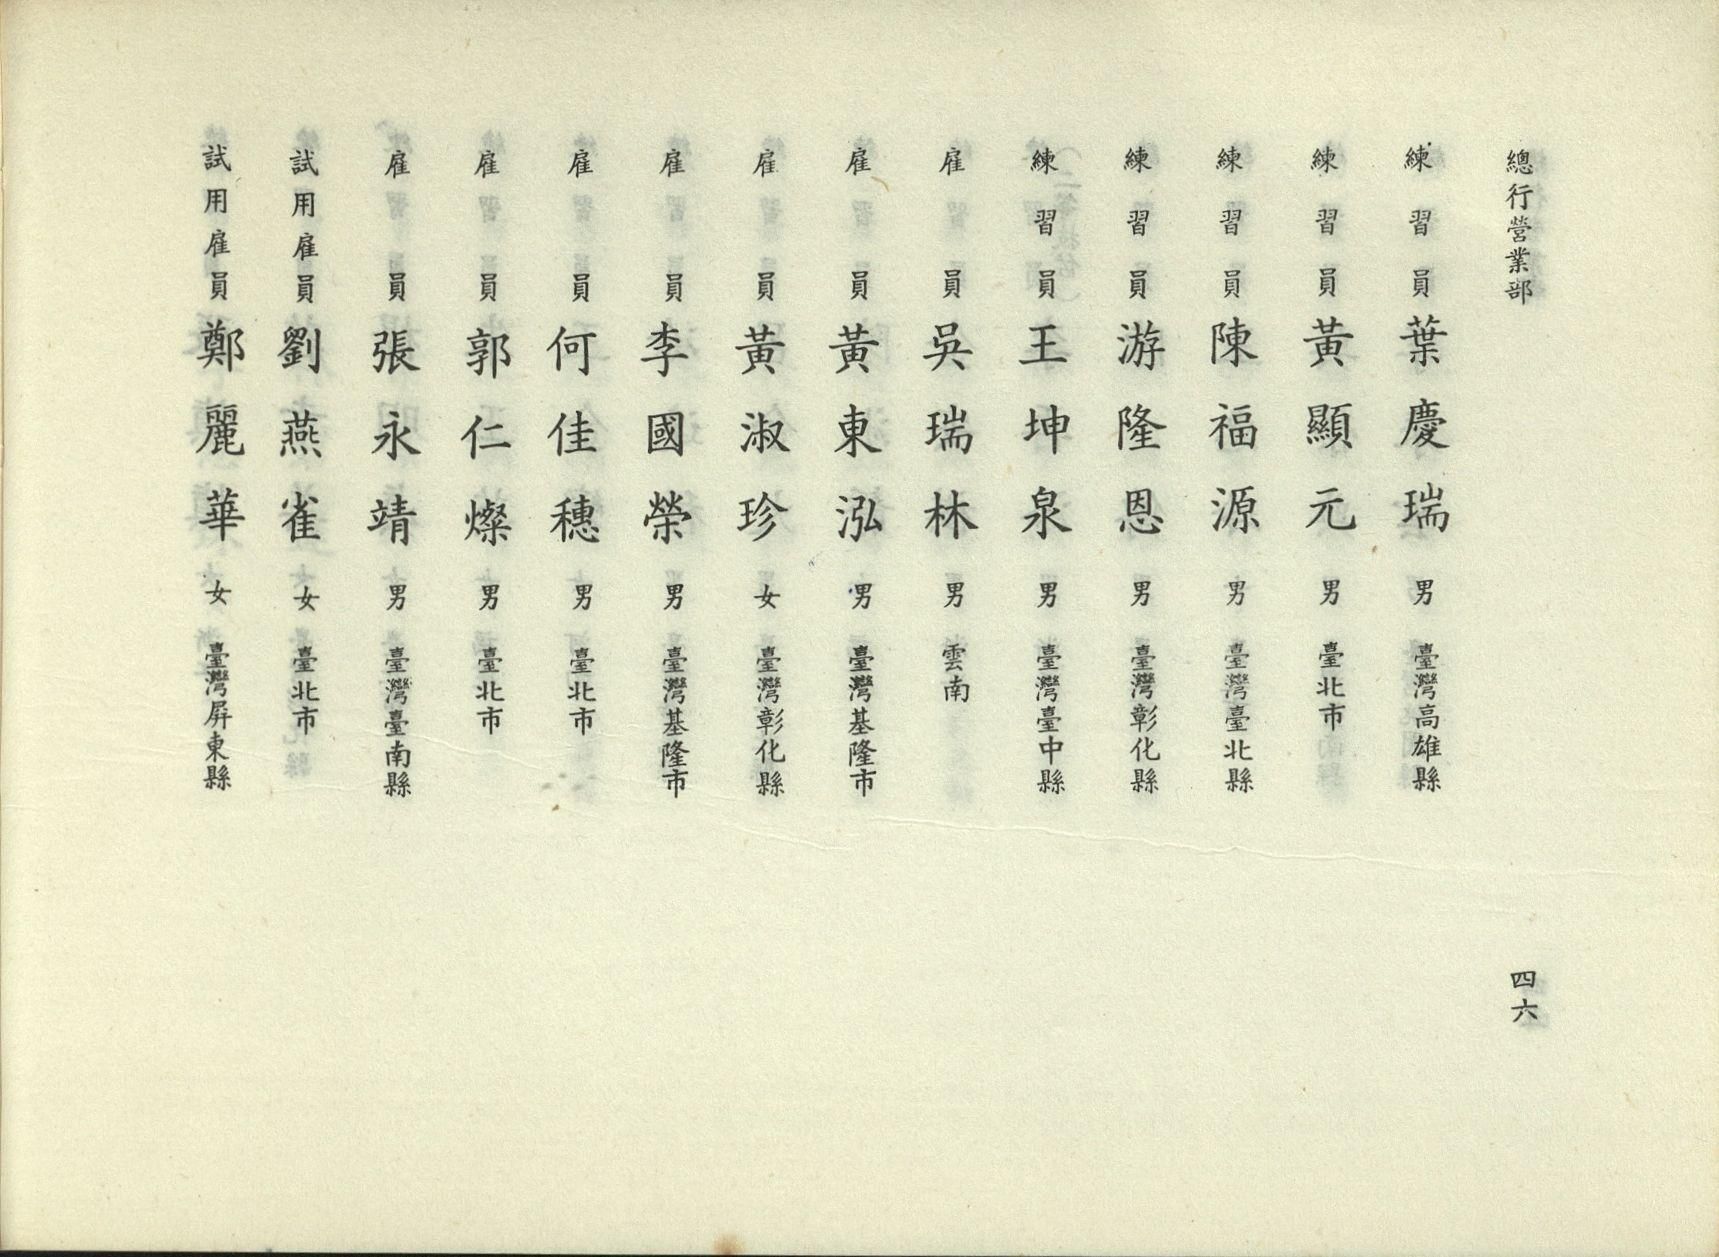 總行營業部
四六
練習員 葉慶瑞 男 臺灣高雄縣
練習員 黃顯元 男 臺北市
練習員 陳福源 男 臺灣臺北縣
練習員 游隆恩 男 臺灣彰化縣
練習員 王坤泉 男 臺灣臺中縣
雇員 吳瑞林 男 雲南
雇員 黃東泓 男 臺灣基隆市
雇員 黃淑珍 女 臺灣彰化縣
雇員 李國榮 男 臺灣基隆市
雇員 何佳穗 男 臺北市
雇員 郭仁燦 男 臺北市
雇員 張永靖 男 臺灣臺南縣
試用雇員 劉燕雀 女 臺北市
試用雇員 鄭麗華 女 臺灣屏東縣